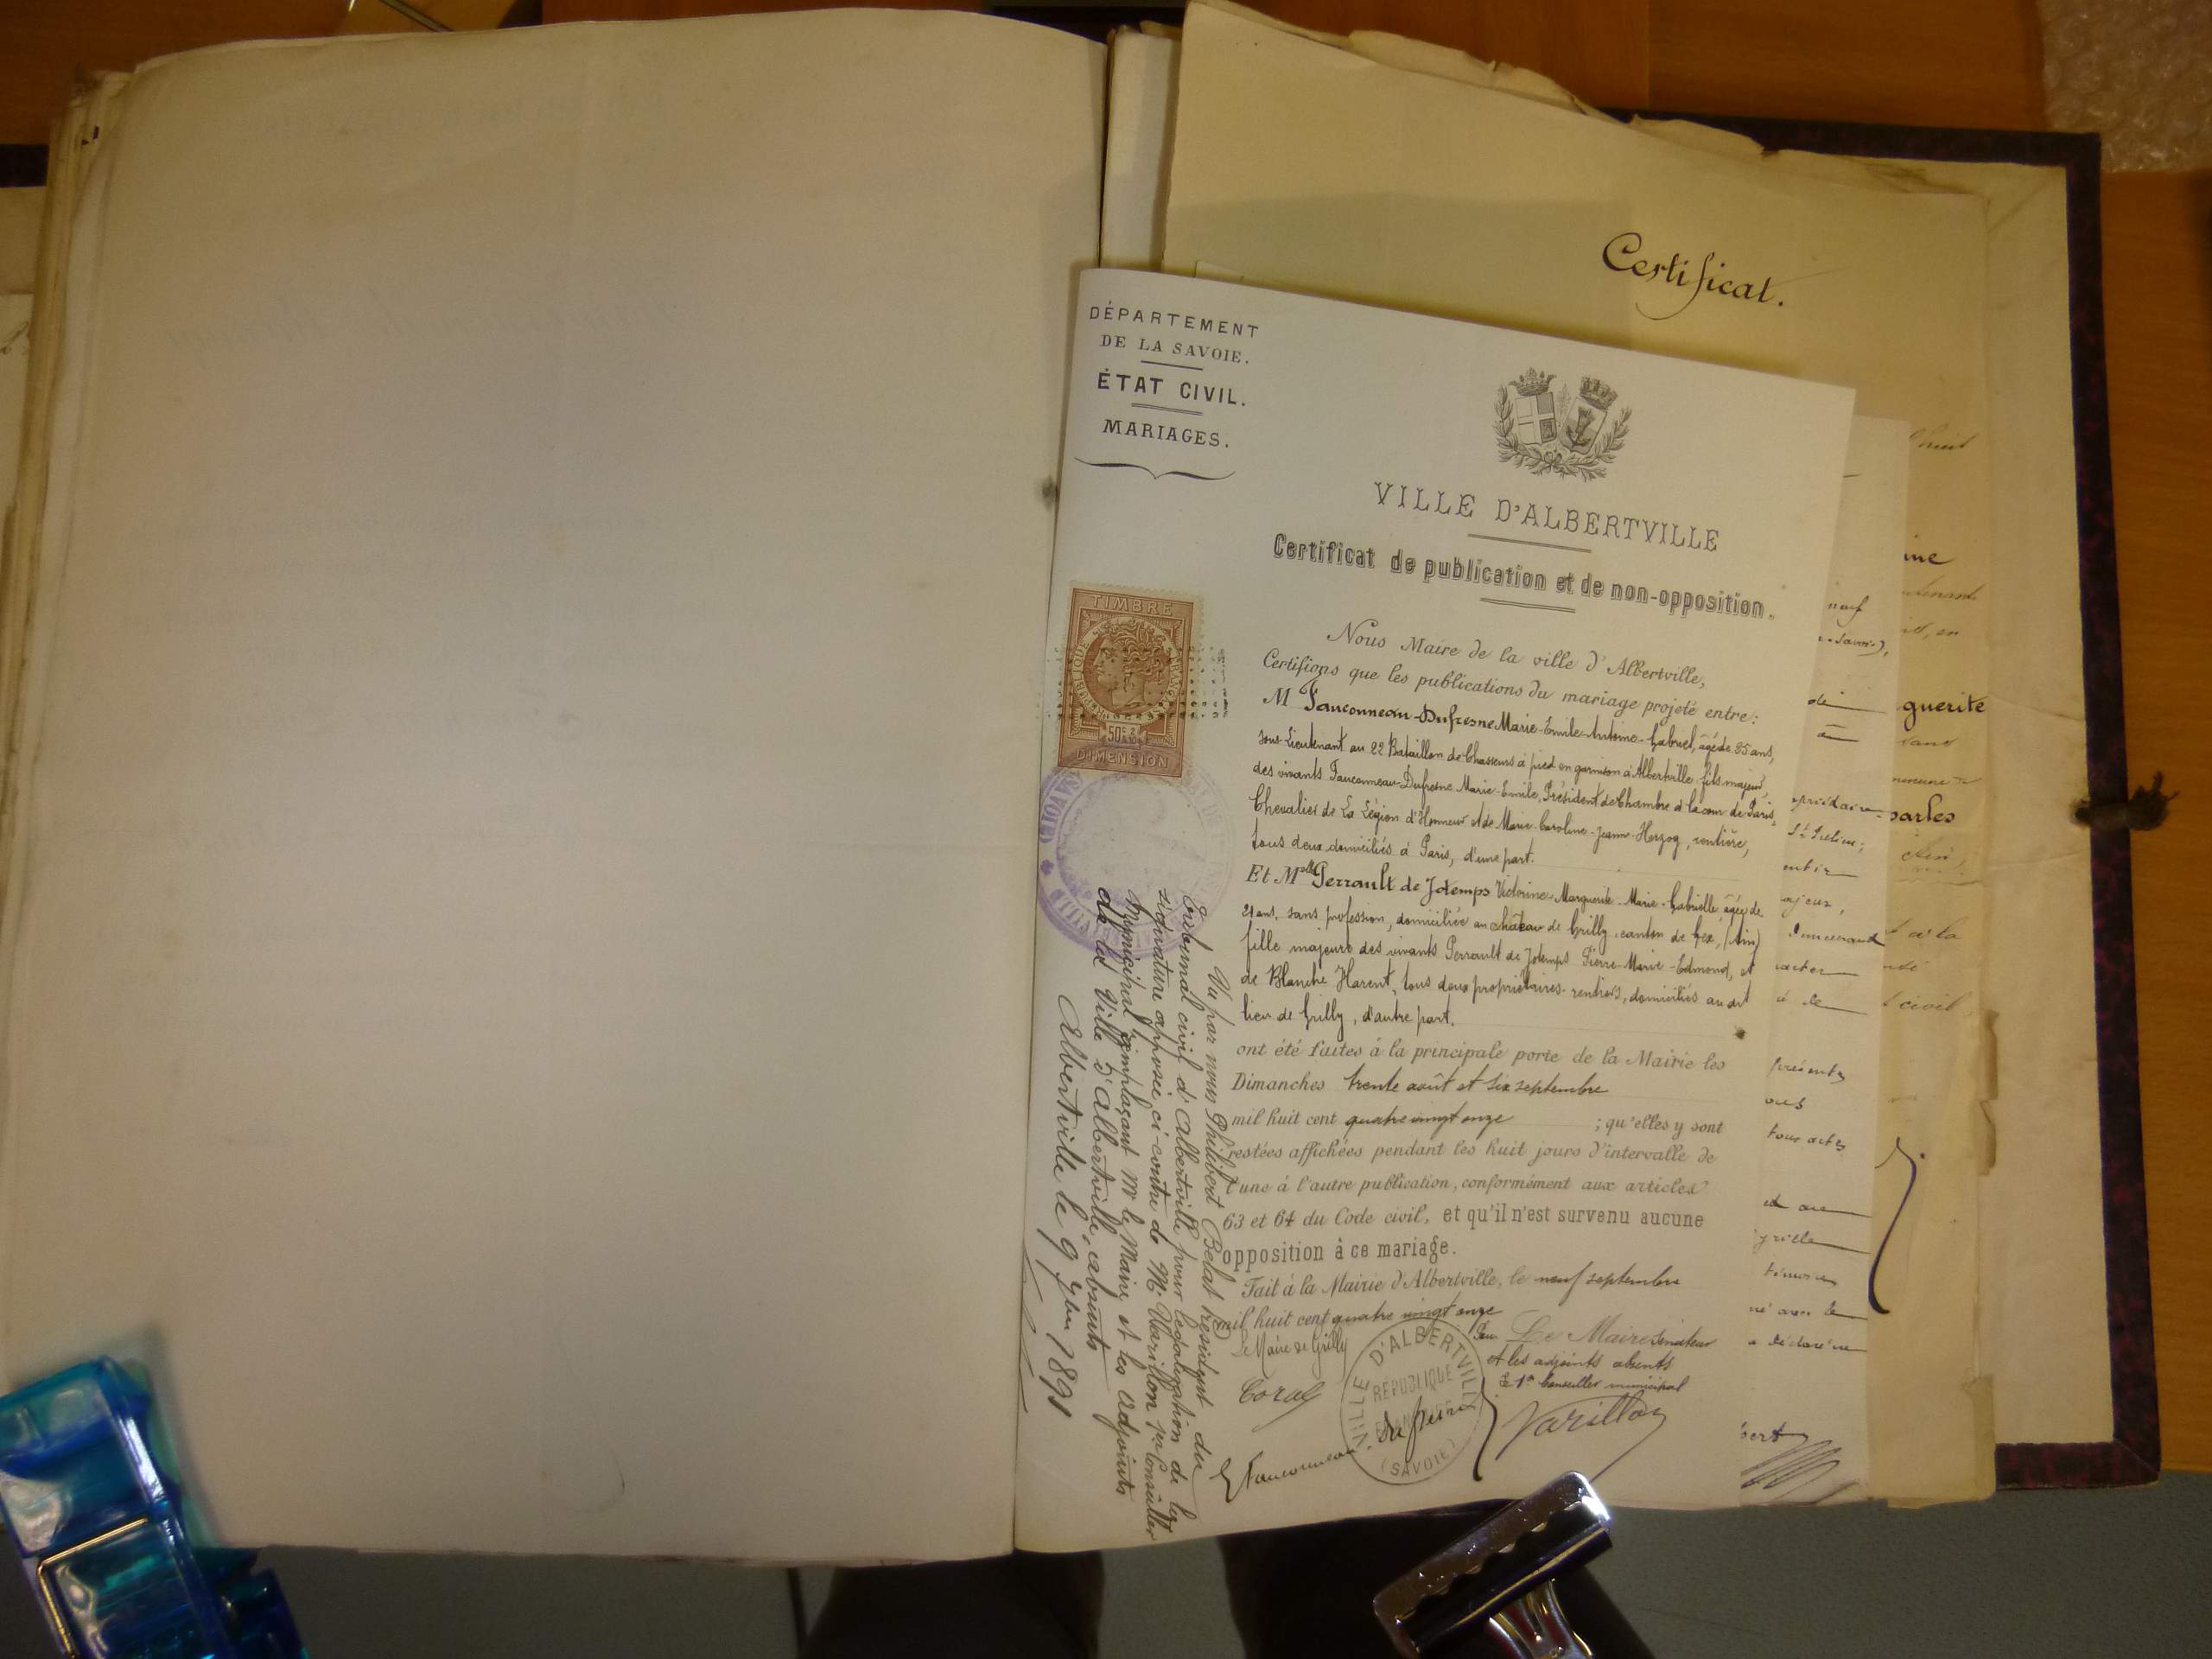 Certificat.
DÉPARTEMENT
DE LA SAVOIE.
ÉTAT CIVIL.
MARIAGES.
VILLE D'ALBERTVILLE
Certificat de publication et de non-opposition.
TIMBRE
RÉPUBLIQUE FRANÇAISE
50c
DIMENSION
Nous Maire de la ville d'Albertville,
Certifions que les publications du mariage projeté entre:
M Fauconneau-Dufresne Marie-Emile-Antoine-Gabriel, âgé de 25 ans,
sous-Lieutenant au 22 Bataillon de Chasseurs à pied en garnison à Albertville fils majeur,
des vivants Fauconneau-Dufresne Marie-Emile, Président de Chambre à la cour de Paris,
Chevalier de La Légion d'Honneur et de Marie-Caroline-Jeanne-Herzog, rentière,
tous deux domiciliés à Paris, d'une part.
Et Melle Perrault de Jotemps Victorine-Marguerite-Marie-Gabrielle âgée de
21 ans, sans profession, domiciliée au château de Grilly canton de Gex, (Ain)
fille majeure des vivants Perrault de Jotemps Pierre-Marie-Edmond, et
de Blanche Harent, tous deux propriétaires-rentiers, domiciliés au dit
lieu de Grilly, d'autre part.
ont été faites à la principale porte de la Mairie les
Dimanches trente août et six septembre
mil huit cent quatre vingt onze ; qu'elles y sont
restées affichées pendant les huit jours d'intervalle de
l'une à l'autre publication, conformément aux articles
63 et 64 du Code civil, et qu'il n'est survenu aucune
opposition à ce mariage.
Fait à la Mairie d'Albertville, le neuf septembre
mil huit cent quatre vingt onze
Pour Le Maire sénateur
et les adjoints absents
Le 1er Conseiller municipal
Varillon
Le Maire de Grilly
Fauconneau-Dufresne
VILLE D'ALBERTVILLE
RÉPUBLIQUE
FRANÇAISE
(SAVOIE)
Vu par nous Philibert Belat Président du
Tribunal civil d'Albertville pour légalisation de la
signature apposée ci-contre de Mr. Varillon 1er Conseiller
Municipal remplaçant Mr le Maire et les adjoints
de la Ville d'Albertville, absents
Albertville le 9 7bre 1891
huit
ine
guerite
sans
parles
à la
civil
neuf
propriétaire
St Julien;
présents
tous actes
témoins
a déclaré ne